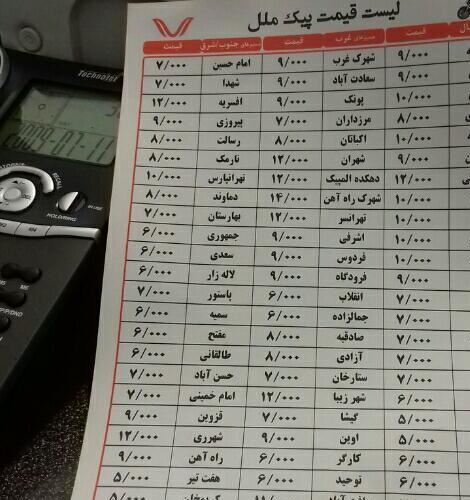 لیست قیمت پیک ملل
قیمت مسیرهای غرب قیمت مسیرهای جنوب/شرق قیمت
۹/۰۰۰ شهرک غرب ۹/۰۰۰ امام حسین ۷/۰۰۰
۹/۰۰۰ سعادت آباد ۹/۰۰۰ شهدا ۷/۰۰۰
۱۰/۰۰۰ پونک ۹/۰۰۰ افسریه ۱۲/۰۰۰
۸/۰۰۰ مرزداران ۷/۰۰۰ پیروزی ۹/۰۰۰
۱۰/۰۰۰ اکباتان ۸/۰۰۰ رسالت ۸/۰۰۰
۹/۰۰۰ شهران ۱۲/۰۰۰ نارمک ۸/۰۰۰
۱۲/۰۰۰ دهکده المپیک ۱۲/۰۰۰ تهرانپارس ۱۰/۰۰۰
۱۰/۰۰۰ شهرک راه آهن ۱۴/۰۰۰ دماوند ۸/۰۰۰
۱۰/۰۰۰ تهرانسر ۱۲/۰۰۰ بهارستان ۷/۰۰۰
۱۰/۰۰۰ اشرفی ۹/۰۰۰ جمهوری ۶/۰۰۰
۱۰/۰۰۰ فردوس ۹/۰۰۰ سعدی ۶/۰۰۰
۹/۰۰۰ فرودگاه ۹/۰۰۰ لاله زار ۶/۰۰۰
۷/۰۰۰ انقلاب ۶/۰۰۰ پاستور ۷/۰۰۰
۷/۰۰۰ جمالزاده ۶/۰۰۰ سمیه ۶/۰۰۰
۷/۰۰۰ صادقیه ۸/۰۰۰ مفتح ۶/۰۰۰
۷/۰۰۰ آزادی ۸/۰۰۰ طالقانی ۶/۰۰۰
۷/۰۰۰ ستارخان ۷/۰۰۰ حسن آباد ۷/۰۰۰
۶/۰۰۰ شهر زیبا ۱۲/۰۰۰ امام خمینی ۷/۰۰۰
۵/۰۰۰ گیشا ۷/۰۰۰ قزوین ۹/۰۰۰
۵/۰۰۰ اوین ۹/۰۰۰ شهرری ۱۲/۰۰۰
۶/۰۰۰ کارگر ۶/۰۰۰ راه آهن ۹/۰۰۰
۶/۰۰۰ توحید ۶/۰۰۰ هفت تیر ۵/۰۰۰
Technotel
2009-07-11
RECALL
HOLD/RING
IN USE
M4